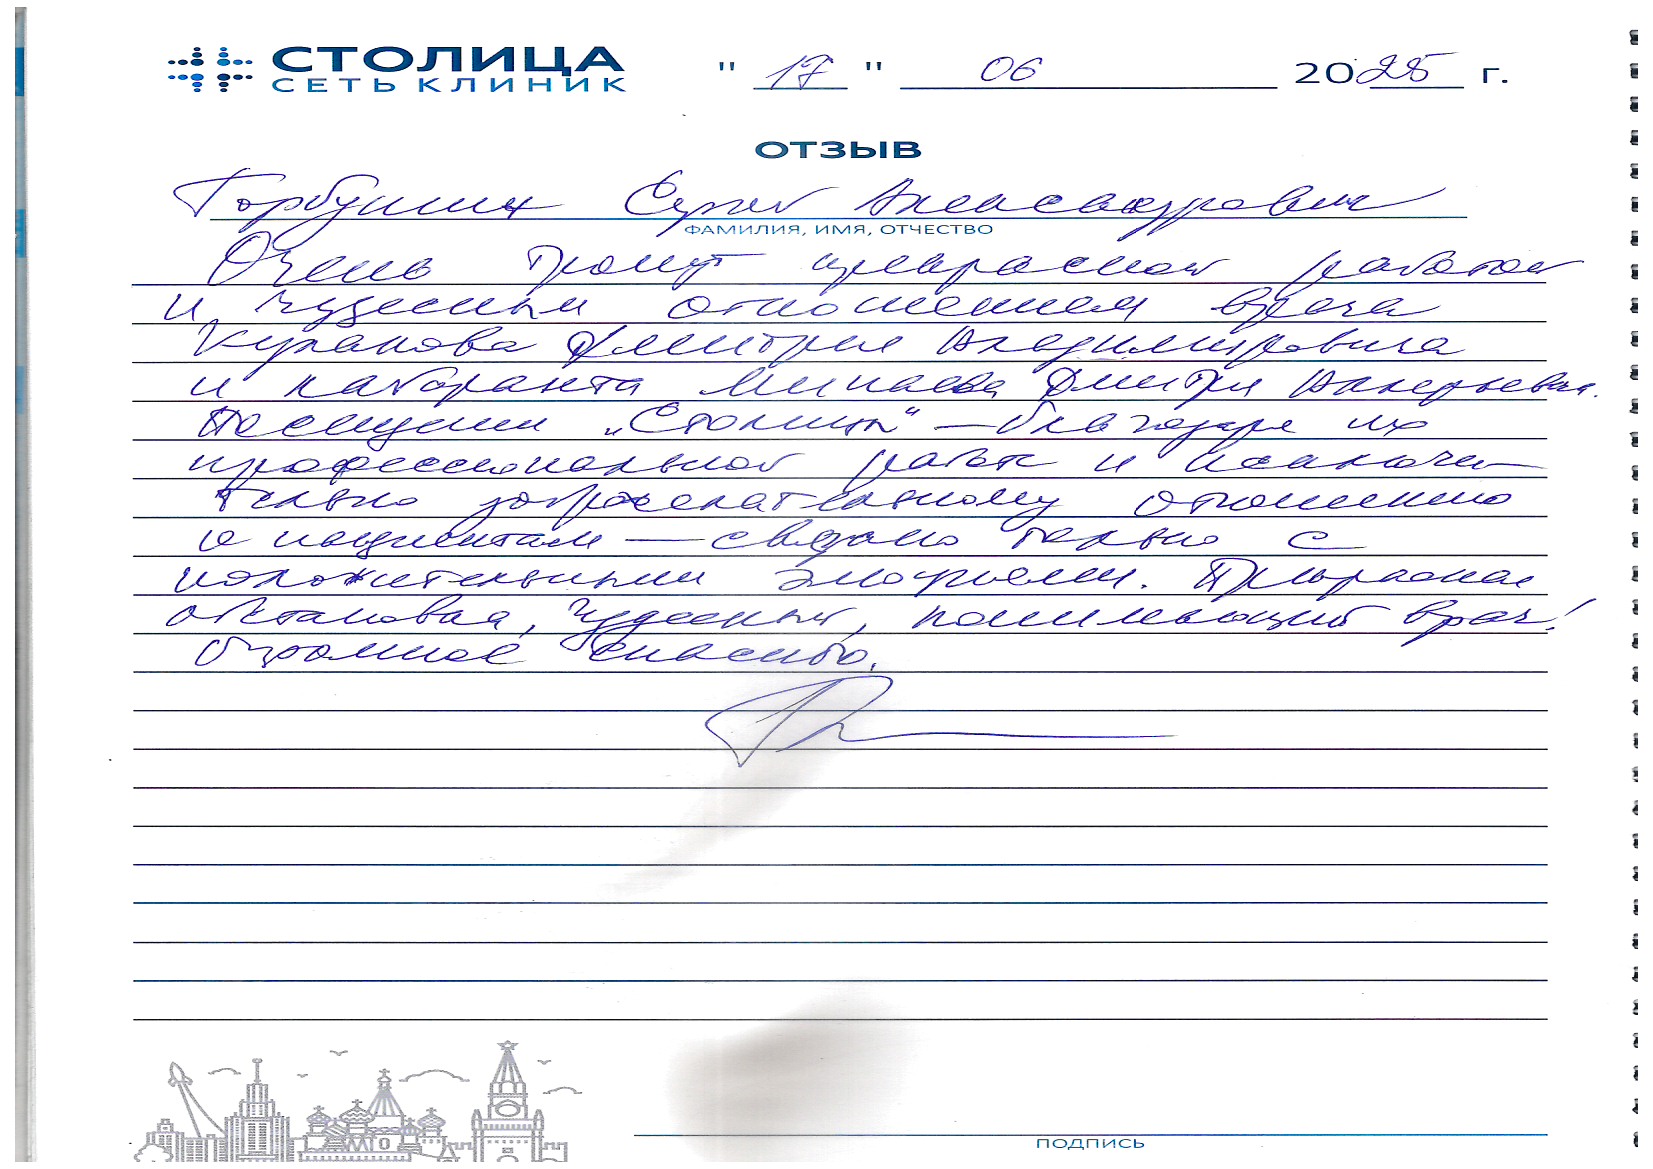 СТОЛИЦА
СЕТЬ КЛИНИК
"17" 06 2025 г.
ОТЗЫВ
Сергей Александрович
ФАМИЛИЯ, ИМЯ, ОТЧЕСТВО
Очень тронут прекрасной работой
и чудесным отношением врача
Дмитрия Владимировича
и лаборанта Минаева Дмитрия Валерьевича.
Посещение „Столицы“ — благодаря их
профессиональной работе и исключи-
тельно доброжелательному отношению
к пациентам — связано только с
положительными эмоциями. Прекрасная
обстановка, чудесный, понимающий врач!
Огромное спасибо.
ПОДПИСЬ